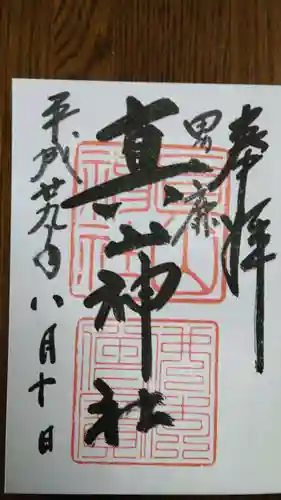 奉拝
男鹿
真山神社
平成廿九年八月十日